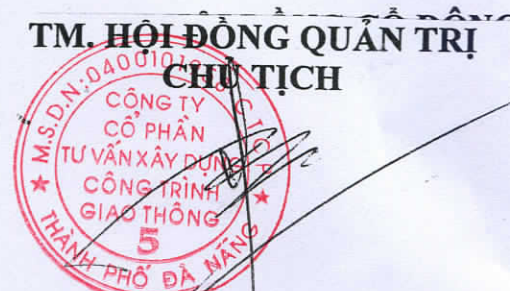 TM. HỘI ĐỒNG QUẢN TRỊ
CHỦ TỊCH
M.S.D.N:0400101
C.T.C.P
CÔNG TY
CỔ PHẦN
TƯ VẤN XÂY DỰNG
CÔNG TRÌNH
GIAO THÔNG
5
THÀNH PHỐ ĐÀ NẴNG